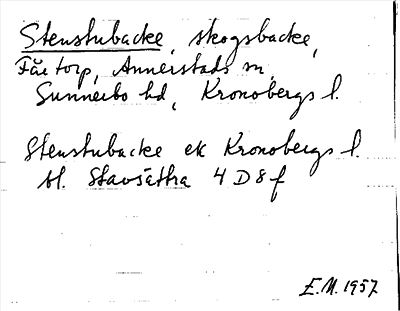 Stenstubacke, skogsbacke,
Fåetorp, Annerstads sn,
Sunnerbo hd, Kronobergs l.
Stenstubacke ek Kronobergs l.
bl. Stavsätra 4 D 8 f
E.M. 1957